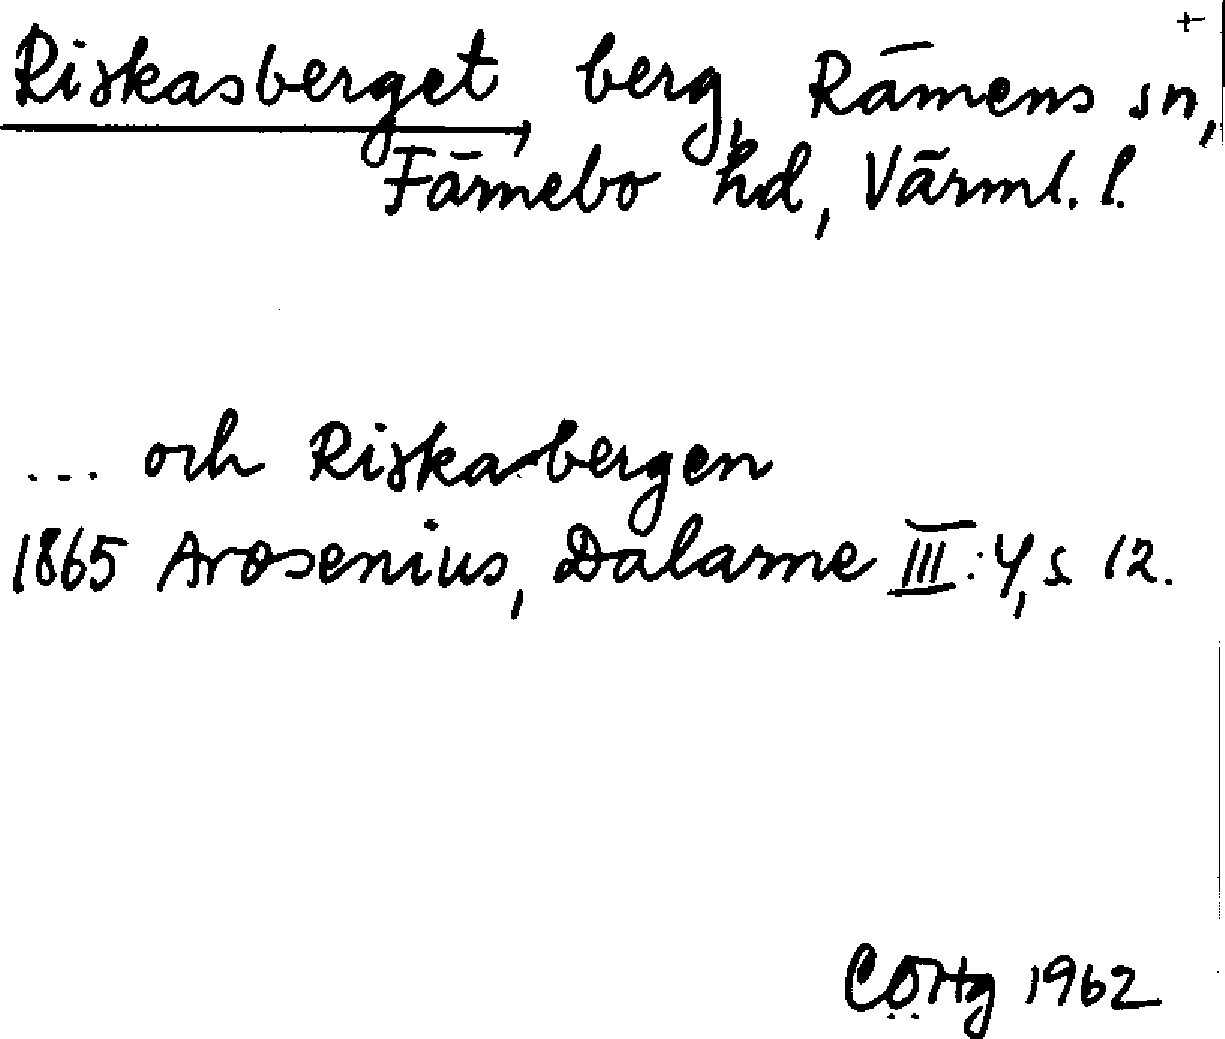 +
Riskasberget berg, Rämens sn,
Färnebo hd, Värml. l.
... och Riska-bergen
1865 Arosenius, Dalarne III:4, s 12.
1962